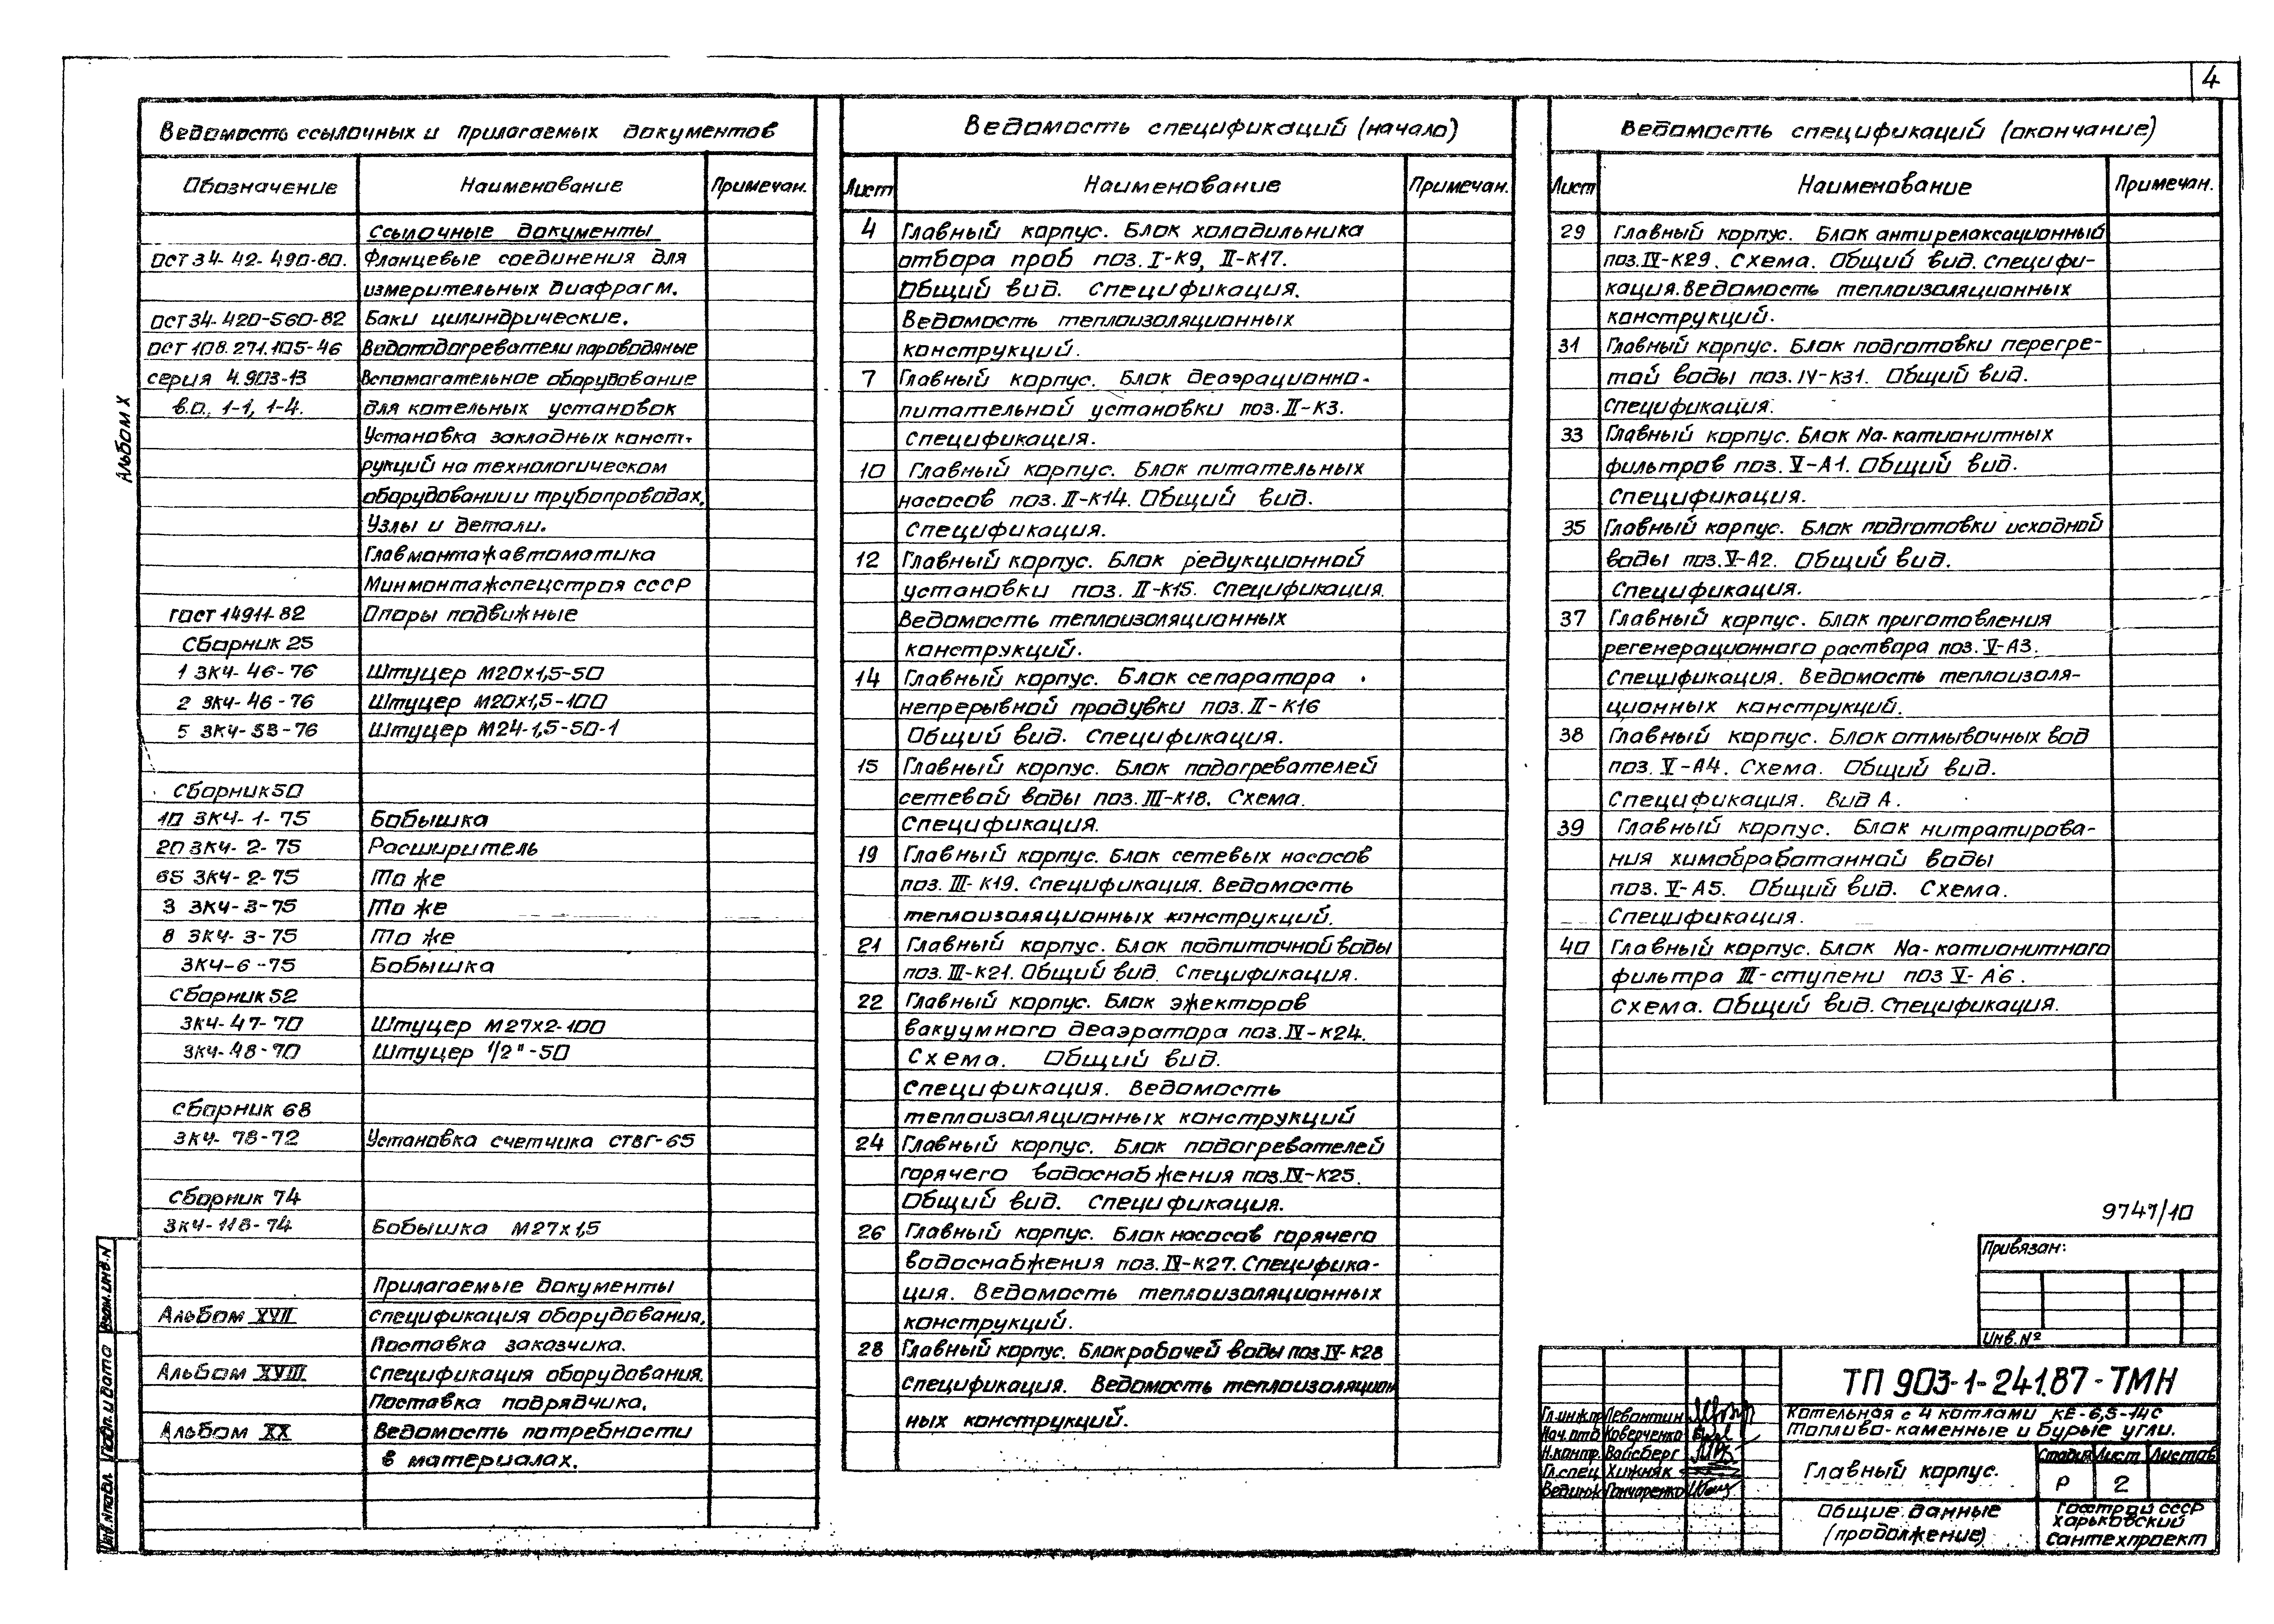 4
Альбом X
Ведомость ссылочных и прилагаемых документов
Обозначение Наименование Примечан.
Ссылочные документы
ОСТ 34-42-490-80. Фланцевые соединения для
измерительных диафрагм.
ОСТ 34-420-560-82 Баки цилиндрические.
ОСТ 108.271.105-46 Водоподогреватели пароводяные
серия 4.903-13 Вспомогательное оборудование
в.0, 1-1, 1-4. для котельных установок
Установка закладных конст-
рукций на технологическом
оборудовании и трубопроводах.
Узлы и детали.
Главмонтажавтоматика
Минмонтажспецстроя СССР
ГОСТ 14911-82 Опоры подвижные
Сборник 25
1 ЗК4-46-76 Штуцер М20х1,5-50
2 ЗК4-46-76 Штуцер М20х1,5-100
5 ЗК4-53-76 Штуцер М24-1,5-50-1
Сборник 50
10 ЗК4-1-75 Бобышка
20 ЗК4-2-75 Расширитель
65 ЗК4-2-75 То же
3 ЗК4-3-75 То же
8 ЗК4-3-75 То же
ЗК4-6-75 Бобышка
Сборник 52
ЗК4-47-70 Штуцер М27х2-100
ЗК4-48-70 Штуцер 1/2"-50
Сборник 68
ЗК4-78-72 Установка счетчика СТВГ-65
Сборник 74
ЗК4-118-74 Бобышка М27х1,5
Прилагаемые документы
Альбом XVII Спецификация оборудования.
Поставка заказчика.
Альбом XVIII Спецификация оборудования.
Поставка подрядчика.
Альбом XX Ведомость потребности
в материалах.
Ведомость спецификаций (начало)
Лист Наименование Примечан.
4 Главный корпус. Блок холодильника
отбора проб поз. I-К9, II-К17.
Общий вид. Спецификация.
Ведомость теплоизоляционных
конструкций.
7 Главный корпус. Блок деаэрационно-
питательной установки поз. II-К3.
Спецификация.
10 Главный корпус. Блок питательных
насосов поз. II-К14. Общий вид.
Спецификация.
12 Главный корпус. Блок редукционной
установки поз. II-К15. Спецификация.
Ведомость теплоизоляционных
конструкций.
14 Главный корпус. Блок сепаратора
непрерывной продувки поз. II-К16
Общий вид. Спецификация.
15 Главный корпус. Блок подогревателей
сетевой воды поз. III-К18. Схема.
Спецификация.
19 Главный корпус. Блок сетевых насосов
поз. III-К19. Спецификация. Ведомость
теплоизоляционных конструкций.
21 Главный корпус. Блок подпиточной воды
поз. III-К21. Общий вид. Спецификация.
22 Главный корпус. Блок эжекторов
вакуумного деаэратора поз. IV-К24.
Схема. Общий вид.
Спецификация. Ведомость
теплоизоляционных конструкций
24 Главный корпус. Блок подогревателей
горячего водоснабжения поз. IV-К25.
Общий вид. Спецификация.
26 Главный корпус. Блок насосов горячего
водоснабжения поз. IV-К27. Специфика-
ция. Ведомость теплоизоляционных
конструкций.
28 Главный корпус. Блок рабочей воды поз. IV-К28
Спецификация. Ведомость теплоизоляцион
ных конструкций.
Ведомость спецификаций (окончание)
Лист Наименование Примечан.
29 Главный корпус. Блок антирелаксационный
поз. IV-К29. Схема. Общий вид. Специфи-
кация. Ведомость теплоизоляционных
конструкций.
31 Главный корпус. Блок подготовки перегре-
той воды поз. IV-К31. Общий вид.
Спецификация.
33 Главный корпус. Блок Na-катионитных
фильтров поз. V-А1. Общий вид.
Спецификация.
35 Главный корпус. Блок подготовки исходной
воды поз. V-А2. Общий вид.
Спецификация.
37 Главный корпус. Блок приготовления
регенерационного раствора поз. V-А3.
Спецификация. Ведомость теплоизоля-
ционных конструкций.
38 Главный корпус. Блок отмывочных вод
поз. V-А4. Схема. Общий вид.
Спецификация. Вид А.
39 Главный корпус. Блок нитратирова-
ния химобработанной воды
поз. V-А5. Общий вид. Схема.
Спецификация.
40 Главный корпус. Блок Na-катионитного
фильтра III-ступени поз V-А6.
Схема. Общий вид. Спецификация.
9747/10
Привязан:
Инв.№
ТП 903-1-241.87-ТМН
Котельная с 4 котлами КЕ-6,5-14С
Топливо-каменные и бурые угли.
Гл.инж.пр Левантин
Нач.отд Коверченко
Н.контр. Вайсберг
Гл.спец Хижняк
Вед.инж Гончаренко
Главный корпус.
Стадия Лист Листов
Р 2
Общие данные
(продолжение)
Госстрой СССР
Харьковский
Сантехпроект
Взам.инв.N
Подп. и дата
Инв.№подл.